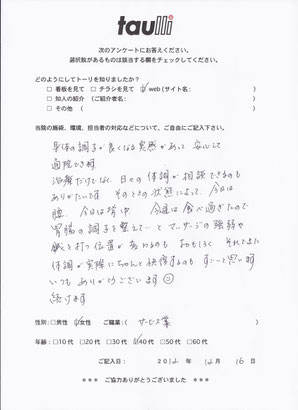 taulli
次のアンケートにお答えください。
選択肢があるものは該当する欄をチェックしてください。
どのようにしてトーリを知りましたか?
□看板を見て □チラシを見て ☑web(サイト名: )
□知人の紹介(ご紹介者名: )
□その他( )
当院の施術、環境、担当者の対応などについて、ご自由にご記入下さい。
身体の調子が良くなる実感があって 安心して
通院できます
治療だけでなく 日々の体調が相談できるのも
ありがたいです そのときの状態によって、今日は
腰、今日は背中 今週は食べ過ぎたので
胃腸の調子を整えて…と マッサージの強弱や
鍼を打つ位置が変わるのも おもしろく、それでまた
体調が実際にちゃんと快復するのも すごいと思います
いつもありがとうございます
続けます
性別:□男性 ☑女性 ご職業:( サービス業 )
年齢:□10代 □20代 □30代 ☑40代 □50代 □60代
ご記入日: 2012年 12月 16日
*** ご協力ありがとうございました ***